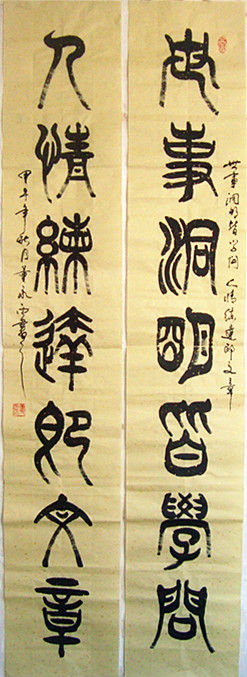 世事洞明皆学问 人情练达即文章
世事洞明皆學問
人情練達即文章
甲午年秋月